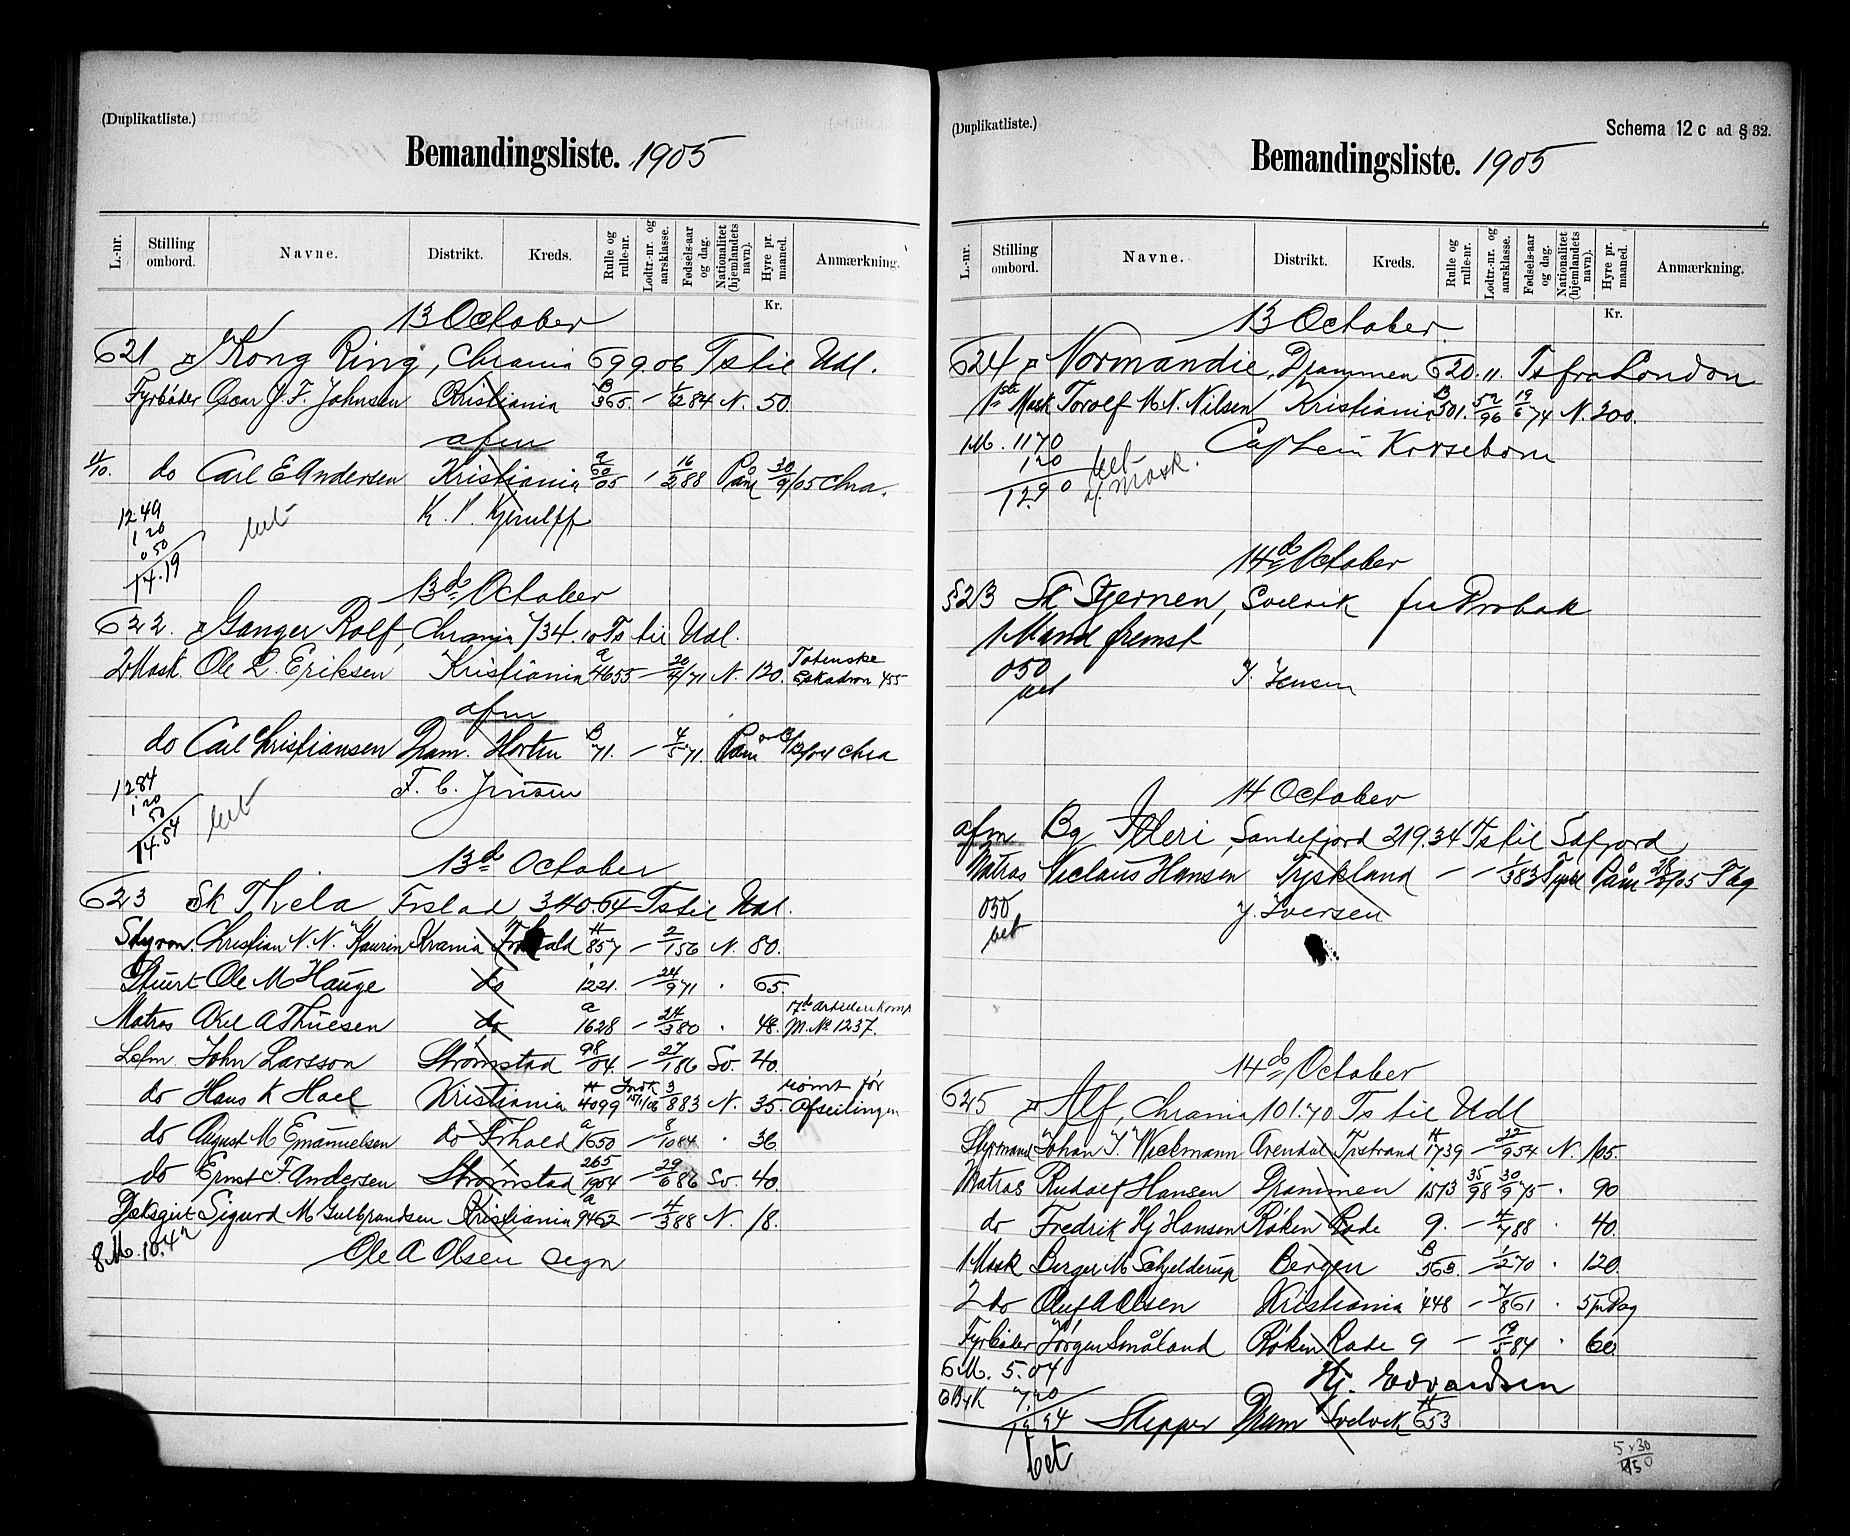 (Duplikatliste.)
Bemandingsliste. 1905
L.-nr.
Stilling ombord.
Navne.
Distrikt.
Kreds.
Rulle og rulle-nr.
Lodtr.-nr. og aarsklasse.
Fødsels-aar og dag.
Nationalitet (hjemlandets navn).
Hyre pr. maaned.
Anmærkning.
Kr.
13 October
621 Kong Ring, Chrania 699.06 Ts til Udl.
Fyrbøder Oscar J. F. Johnsen Kristiania B 365. – 1/2 84 N. 50.
afm
4/10. do Carl E Andersen Kristiania a 60/05 16/2 88 30/9/05 Chra.
1249
120
050
14.19
bet
13de October
622. Ganger Rolf, Chrania 734.10 Ts til Udl.
2 Mask. Ole L. Eriksen Kristiania a 4655 – 20/4 71 N. 120. Totenske Eskadron 455
afm
do Carl Christiansen Dram. Horten B 71. – 4/5 71. Chra
F. C. Jensen
1284
120
50
14.54
bet
13de October
623 Sk Thela Frstad 340.64 Ts til Udl.
Styrm. Christian N. N. Kaurin Krania 857 – 2/1 56 N. 80.
Stuert Ole M Hauge do 1221. – 24/9 71 65.
Matros Axel A Thuesen do a 1628 – 24/3 80 48. 17de Artilleri Komp M. No. 1237.
Letm. John Larsson Strømstad 98/04 – 27/1 86 Sv. 40.
do Hans K Hoel Kristiania 4099 3/8 83 N. 35. rømt før Afseilingen
do August M Emanuelsen do Frhald a 1650 – 8/10 84 36
do Ernst F. Andersen Strømstad 265/1904 – 29/6 86 Sv. 40.
Dæksgut Sigurd M Gulbrandsen Kristiania a 9462 – 4/3 88 N. 18.
8 M. 10.42
Ole A Olsen segn
(Duplikatliste.)
Schema 12 c ad § 32.
Bemandingsliste. 1905
L.-nr.
Stilling ombord.
Navne.
Distrikt.
Kreds.
Rulle og rulle-nr.
Lodtr.-nr. og aarsklasse.
Fødsels-aar og dag.
Nationalitet (hjemlandets navn).
Hyre pr. maaned.
Anmærkning.
Kr.
13 October
624 Normandie, Drammen 620.11. Ts fra London
1ste Mask Torolf M. N. Nilsen Kristiania B 501. 52/96 19/6 74 N. 200.
1 M. 1170
120
12.90
bet
Mask.
Captein Korsebom
14de October
§23 Sk Stjernen, Svelvik Drobak
1 Mand fremst
050
bet
J. Jensen
14 October
afm Bg Sleri, Sandefjord 219.34 Ts til Sdfjord
Matros Niclaus Hansen Tyskland – – 1/3 83
050
bet
J. Iversen
14de October
625 Alf, Chrania 101.70 Ts til Udl
Styrmand Johan J. Wickmann Arendal Tvstrand 1739 – 22/9 54 N. 105.
Matros Rudolf Hansen Drammen 1513 35/98 30/9 75 90
do Fredrik Hj Hansen Røken Rode 9. – 4/7 88 40.
1 Mask Birger M Schjelderup Bergen B 363. – 1/2 70 120.
2 do Oluf A Olsen Kristiania 448 – 7/8 61 5 pr Dag
Fyrbøder Jørgen Småland Røken Rode 9 – 19/5 84 60.
6 M. 5.04
7.20
12.24
Hj. Edvardsen
Skipper Dram Svelvik 653
bet
5 x 30
150